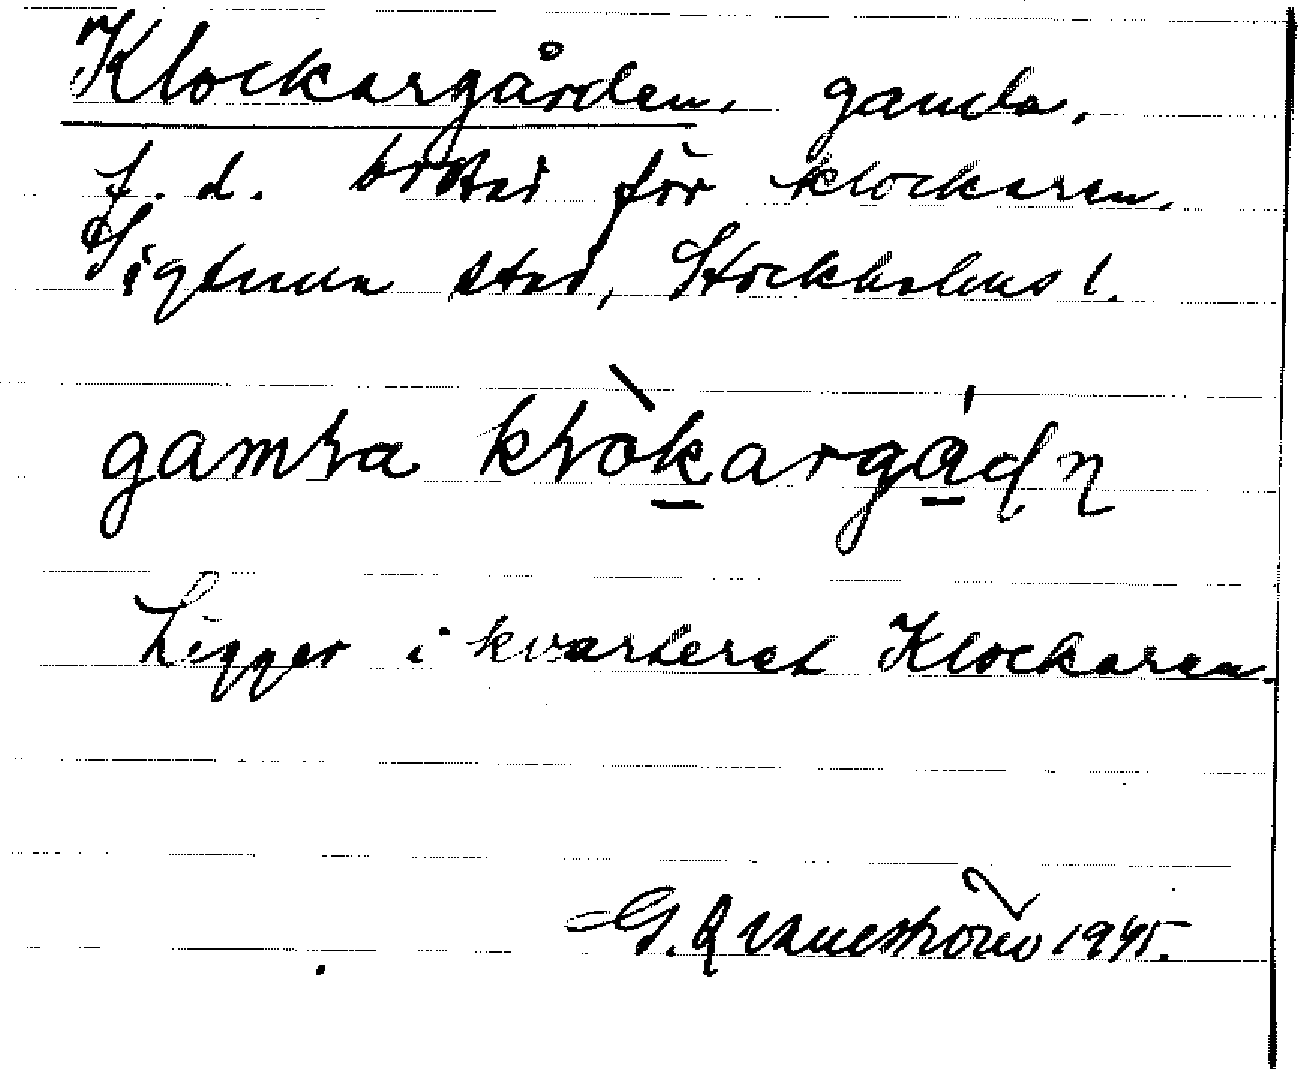 Klockargården, gamla,
f. d. bostad för klockaren.
Sigtuna stad, Stockholms l.
gamla klòkargádn
Ligger i kvarteret Klockaren.
G. 1945.